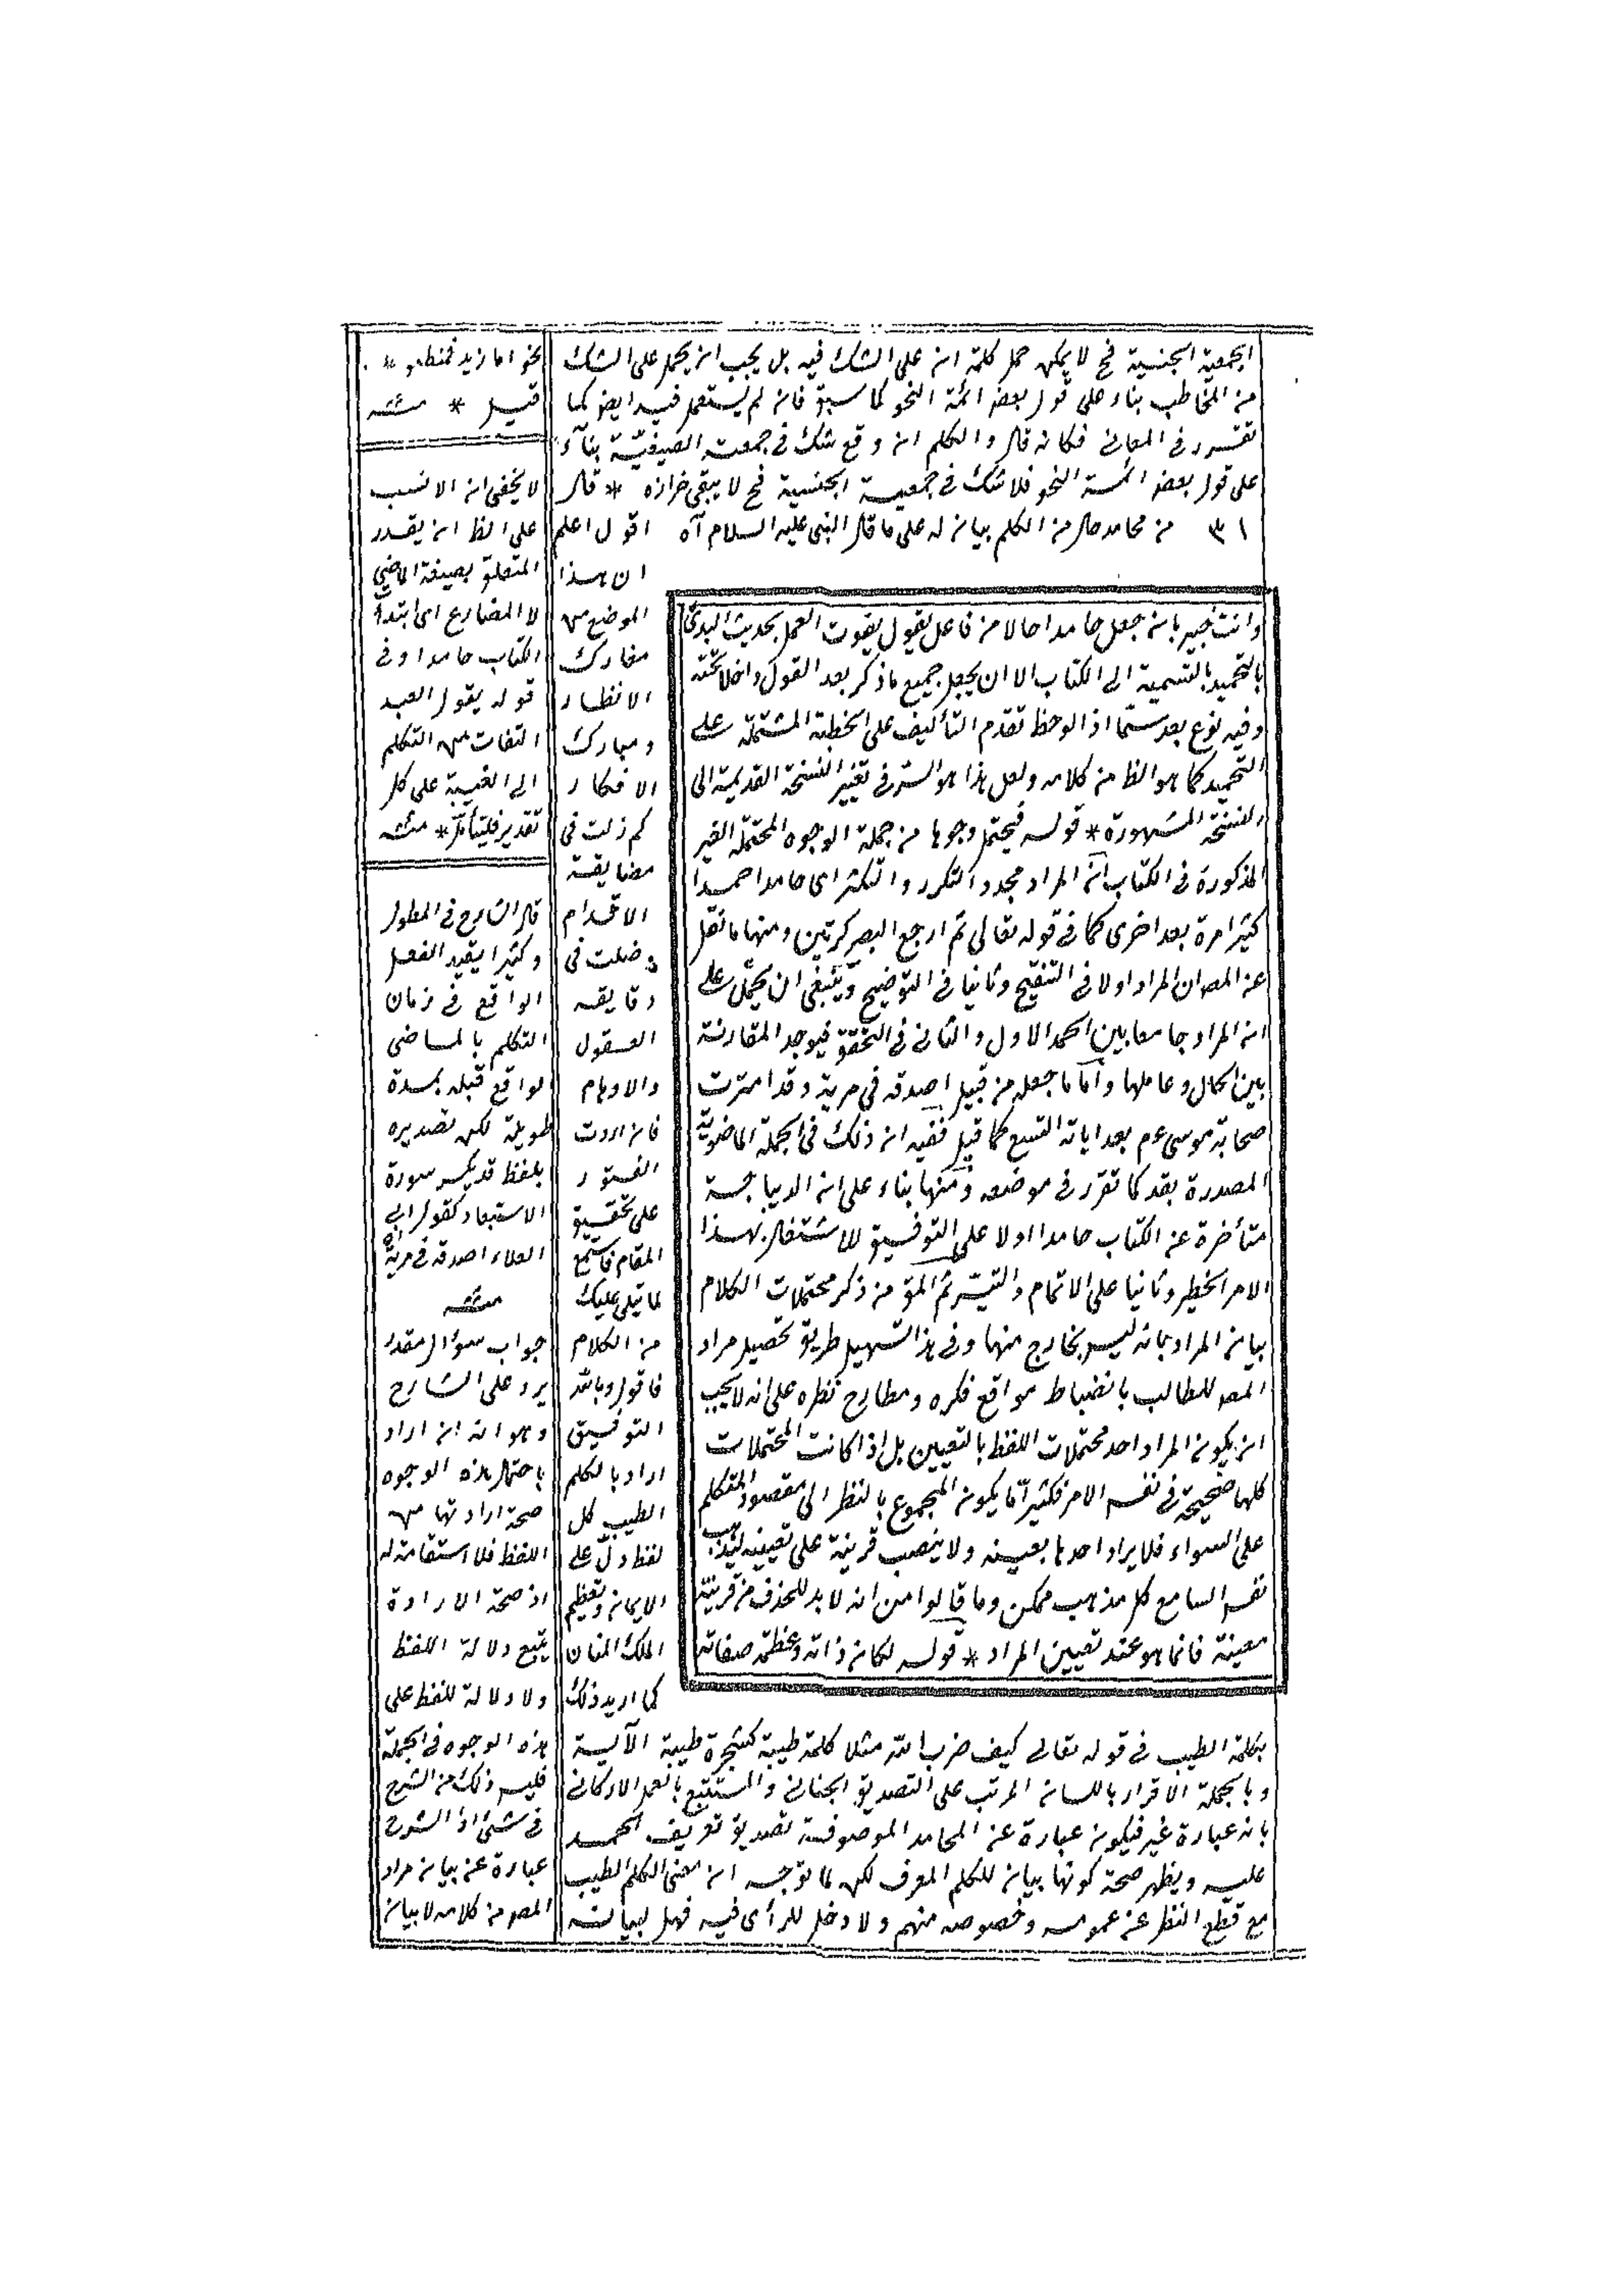 الجمعية الجنسية فح لا يمكن حمل كلمة ان على الشك فيه بل يجب ان يحمل على الشك
من المخاطب بناء على قول بعض ائمة النحو كما سبق فانه لم يستعمل فيه ايضا كما
تقرر فى المعانى فكانه قال والكلم ان وقع شك فى جمعيت الصيغية بناء
على قول بعض ائمة النحو فلا شك فى جمعية الجنسية فح لا يبقى حزازه * قال
٣١ من محامد حال من الكلم بيان له على ما قال النبى عليه السلام آه اقول اعلم
ان هذا
الموضع من
معارك
الانظار
ومبارك
الافكار
كم زلت فى
مضايقة
الاقدام
وضلت فى
دقايقه
العقول
والاوهام
فان اردت
العثور
على تحقيق
المقام فاسمع
لما يتلى عليك
من الكلام
فاقول وبالله
التوفيق
اراد بالكلم
الطيب كل
لفظ دل على
الايمان وتعظيم
الملك المنان
كما اريد ذلك
بكلمة الطيب فى قوله تعالى كيف ضرب الله مثلا كلمة طيبة كشجرة طيبة الآية
وبالجملة الاقرار باللسان المرتب على التصديق الجنانى والمستتبع بالعمل الاركانى
بانه عبارة غير فيكون عبارة عن المحامد الموصوفة تصديق تعريف الحمد
عليه ويظهر صحة كونها بيان للكلم المعرف لكن لما توجه ان معنى الكلم الطيب
مع قطع النظر عن عمومه وخصوصه منهم ولا دخل للرأى فيه فهل لبيانه
وانت خبير بان جعل حامدا حالا من فاعل يقول يفوت العمل بحديث البدئ
بالتحميد بالتسمية الى الكتاب الا ان يجعل جميع ما ذكر بعد القول داخلا تحته
وفيه نوع بعد سيما اذ الوحظ تقدم التأليف على الخطبة المشتملة على
التحميد كما هو الظ من كلامه ولعل هذا هو السر فى تغيير النسخة القديمة الى
النسخة المشهورة * قوله فيحتمل وجوها من جملة الوجوه المحتملة الغير
المذكورة فى الكتاب ان المراد مجدد التكرر والتكثر اى حامدا حمدا
كثيرا مرة بعد اخرى كما فى قوله تعالى ثم ارجع البصر كرتين ومنها ما نقل
عن المص ان المراد اولا فى التنقيح وثانيا فى التوضيح وينبغى ان يحمل على
ان المراد جامعا بين الحمد الاول والثانى فى التحقق فيوجد المقارنة
بين الحال وعاملها واما ما جعله من قبيل اصدقه فى مرية وقد امترت
صحابة موسى ع م بعد اياته التسع كما قيل ففيه ان ذلك فى الجملة الماضوية
المصدرة بقد كما تقرر فى موضعه ومنها بناء على ان الديباجة
متأخرة عن الكتاب حامدا اولا على التوفيق للاشتغال بهذا
الامر الخطير وثانيا على الاتمام والتيسر ثم المق من ذكر محتملات الكلام
بيان المراد بانه ليس بخارج منها وفى هذا التسهيل طريق تحصيل مراد
المص للطالب بانضباط مواقع فكره ومطارح نظره على انه لا يجب
ان يكون المراد احد محتملات اللفظ بالتعيين بل اذا كانت المحتملات
كلها صحيحة فى نفس الامر فكثيرا ما يكون المجموع بالنظر الى مقصود المتكلم
على السواء فلا يراد احدها بعينه ولا ينصب قرينة على تعيينه ليذهب
نفس السامع كل مذهب ممكن وما قالوا من انه لا بد للحذف من قرينة
معينة فانما هو عند تعيين المراد * قوله لكان ذاته وعظمة صفاته
نحو اما زيد فمنطلق *
قيل * منه
لا يخفى ان الانسب
على الظ ان يقدر
المتعلق بصيغة الماضى
لا المضارع اى ابتدأ
الكتاب حامدا وفى
قوله يقول العبد
التفات من التكلم
الى الغيبة على كل
تقدير فليتأمل * منه
قال الشارح فى المطول
وكثيرا يقيد الفعل
الواقع فى زمان
التكلم بالماضى
الواقع قبله بمدة
طويلة لكن تصديره
بلفظ قد يكسر سورة
الاستبعاد كقول ابى
العلاء اصدقه فى مرية
منه
جواب سؤال مقدر
يرد على الشارح
وهو انه ان اراد
باحتمال هذه الوجوه
صحة ارادتها من
اللفظ فلا استقامة له
اذ صحة الارادة
يتبع دلالة اللفظ
ولا دلالة للفظ على
هذه الوجوه فى الجملة
فليس ذلك من الشرح
فى شئ اذ الشرح
عبارة عن بيان مراد
المص من كلامه لا بيان